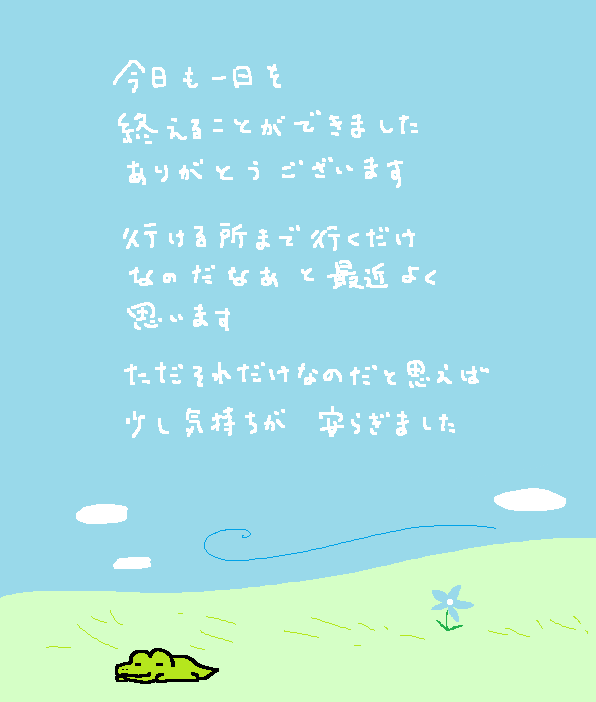 今日も一日を
終えることができました
ありがとうございます
行ける所まで行くだけ
なのだなあと最近よく
思います
ただそれだけなのだと思えば
少し気持ちが 安らぎました